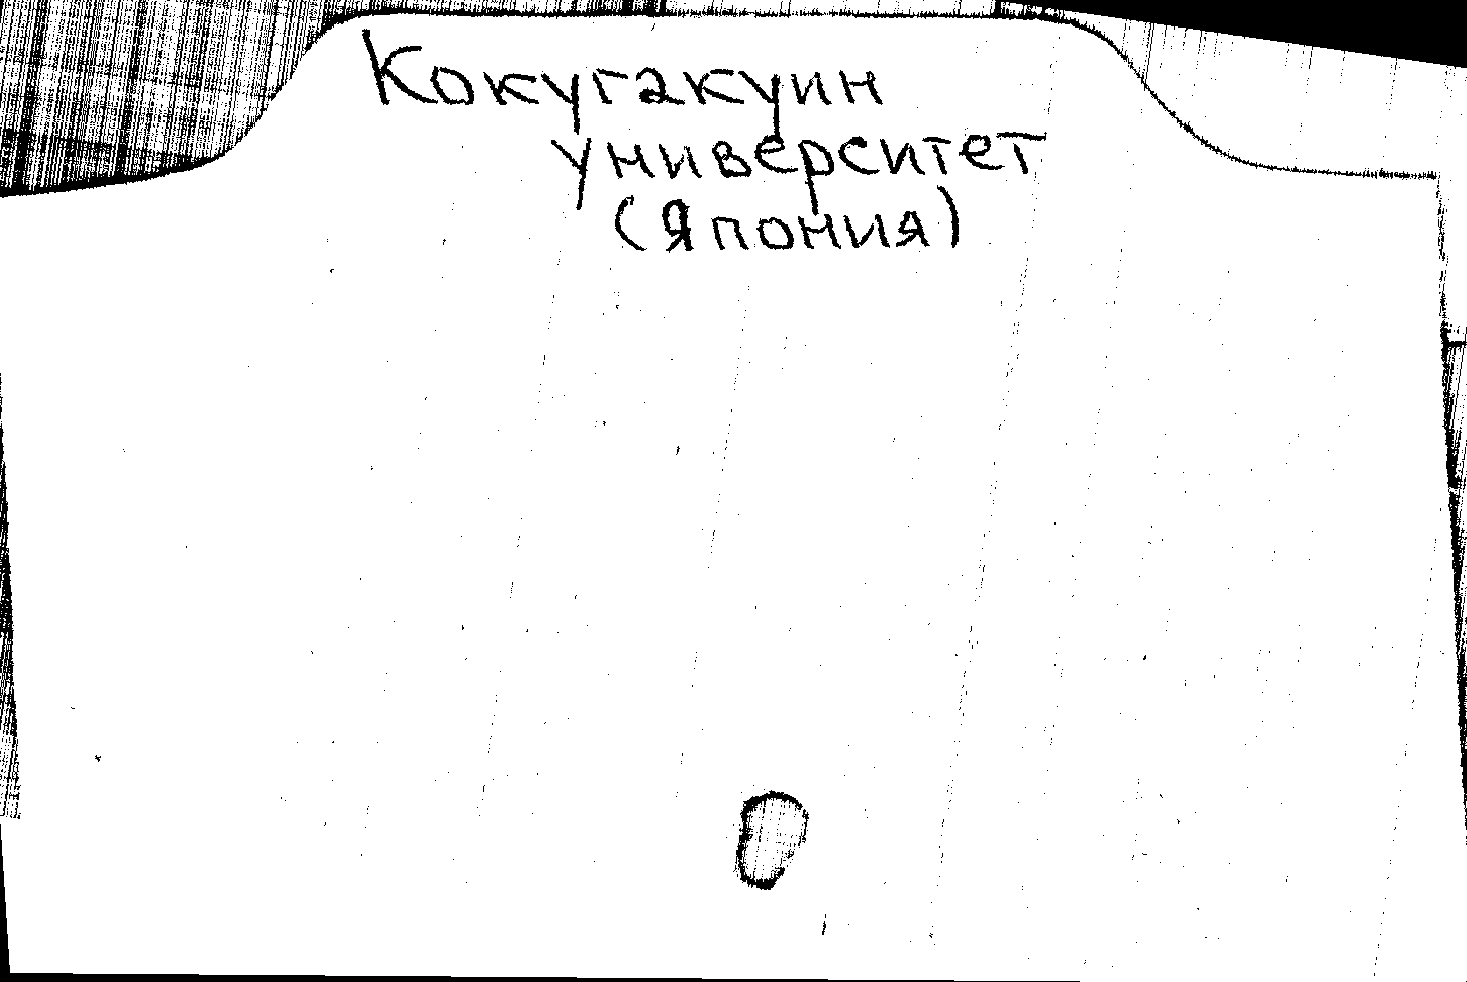 Кокугакуин
университет
(Япония)